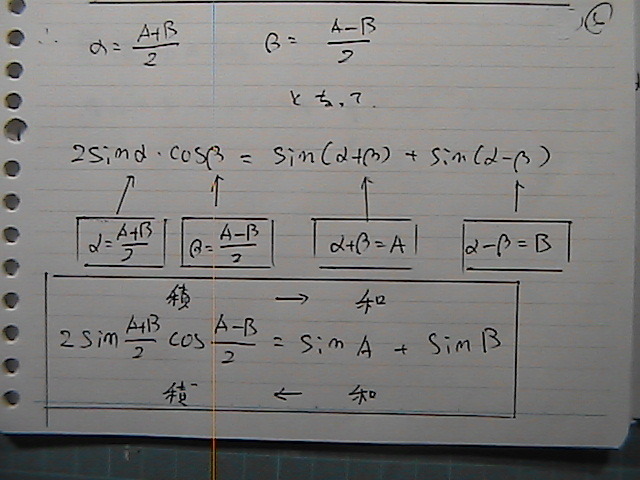 ∴ α = (A+B)/2 β = (A−B)/2
となって
2sinα・cosβ = sin(α+β) + sin(α−β)
α = (A+B)/2 β = (A−B)/2 α+β = A α−β = B
積 → 和
2 sin (A+B)/2 cos (A−B)/2 = sin A + sin B
積 ← 和